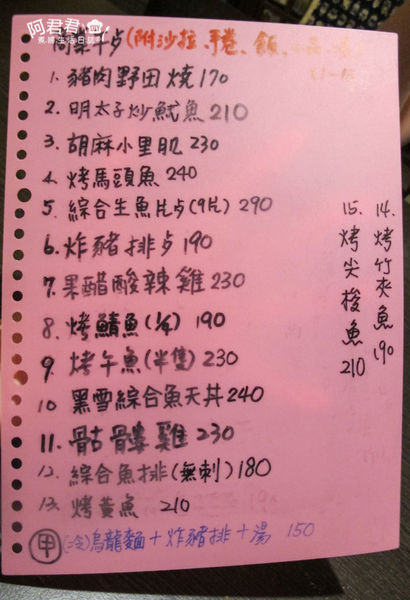 阿君君
煮婦生活日記
商業午歺(附沙拉、手卷、飯、
1. 豬肉野田燒170
2. 明太子炒魷魚210
3. 胡麻小里肌230
4. 烤馬頭魚240
5. 綜合生魚片歺(9片)290
6. 炸豬排歺190
7. 果醋酸辣雞230
8. 烤鯖魚(1/2)190
9. 烤午魚(半隻)230
10 黑雪綜合魚天丼240
11. 骷髏雞230
12. 綜合魚排(無刺)180
13. 烤黃魚 210
14. 烤竹夾魚190
15. 烤尖梭魚210
甲 (冷)烏龍麵+炸豬排+湯 150